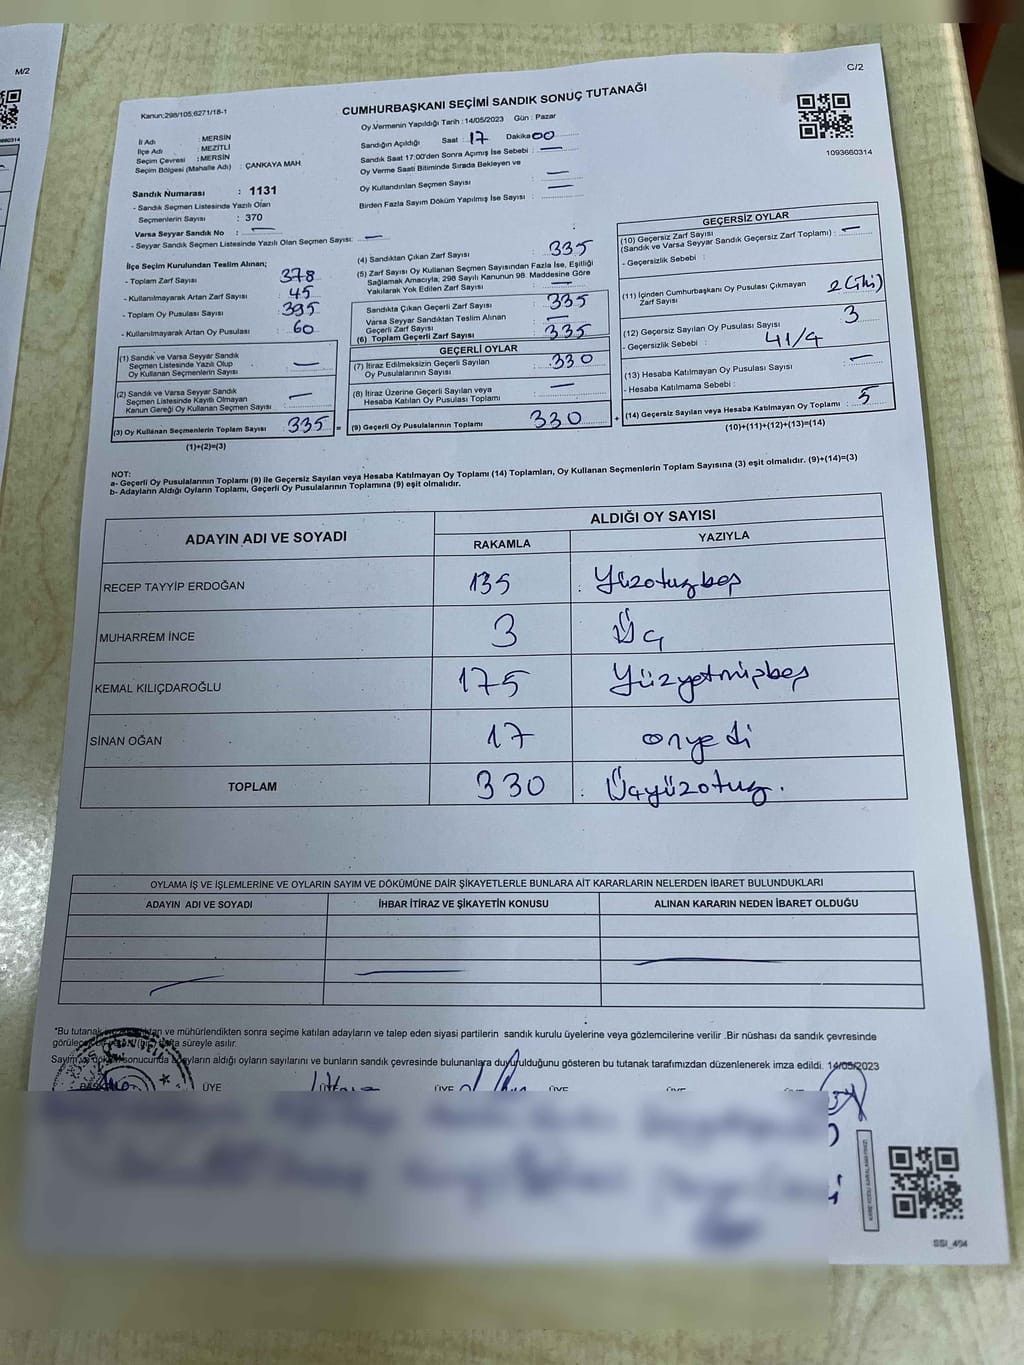 M/2
C/2
Kanun:298/105;6271/18-1
CUMHURBAŞKANI SEÇİMİ SANDIK SONUÇ TUTANAĞI
1093660314
İl Adı : MERSİN
İlçe Adı : MEZİTLİ
Seçim Çevresi : MERSİN
Seçim Bölgesi (Mahalle Adı) : ÇANKAYA MAH.
Sandık Numarası : 1131
- Sandık Seçmen Listesinde Yazılı Olan
Seçmenlerin Sayısı : 370
Varsa Seyyar Sandık No : —
- Seyyar Sandık Seçmen Listesinde Yazılı Olan Seçmen Sayısı: —
Oy Vermenin Yapıldığı Tarih : 14/05/2023 Gün : Pazar
Sandığın Açıldığı Saat : 17 Dakika 00
Sandık Saat 17:00'den Sonra Açımış İse Sebebi : —
Oy Verme Saati Bitiminde Sırada Bekleyen ve
Oy Kullandırılan Seçmen Sayısı : —
Birden Fazla Sayım Döküm Yapılmış İse Sayısı : —
İlçe Seçim Kurulundan Teslim Alınan;
- Toplam Zarf Sayısı : 378
- Kullanılmayarak Artan Zarf Sayısı : 45
- Toplam Oy Pusulası Sayısı : 395
- Kullanılmayarak Artan Oy Pusulası : 60
(1) Sandık ve Varsa Seyyar Sandık
Seçmen Listesinde Yazılı Olup
Oy Kullanan Seçmenlerin Sayısı : —
(2) Sandık ve Varsa Seyyar Sandık
Seçmen Listesinde Kayıtlı Olmayan
Kanun Gereği Oy Kullanan Seçmen Sayısı : —
(3) Oy Kullanan Seçmenlerin Toplam Sayısı : 335 =
(1)+(2)=(3)
(4) Sandıktan Çıkan Zarf Sayısı : 335
(5) Zarf Sayısı Oy Kullanan Seçmen Sayısından Fazla İse, Eşitliği
Sağlamak Amacıyla; 298 Sayılı Kanunun 98. Maddesine Göre
Yakılarak Yok Edilen Zarf Sayısı : —
Sandıkta Çıkan Geçerli Zarf Sayısı : 335
Varsa Seyyar Sandıktan Teslim Alınan
Geçerli Zarf Sayısı : —
(6) Toplam Geçerli Zarf Sayısı : 335
GEÇERLİ OYLAR
(7) İtiraz Edilmeksizin Geçerli Sayılan
Oy Pusulalarının Sayısı : 330
(8) İtiraz Üzerine Geçerli Sayılan veya
Hesaba Katılan Oy Pusulası Toplamı : —
(9) Geçerli Oy Pusulalarının Toplamı : 330 +
GEÇERSİZ OYLAR
(10) Geçersiz Zarf Sayısı
(Sandık ve Varsa Seyyar Sandık Geçersiz Zarf Toplamı) : —
- Geçersizlik Sebebi :
(11) İçinden Cumhurbaşkanı Oy Pusulası Çıkmayan
Zarf Sayısı : 2 (iki)
(12) Geçersiz Sayılan Oy Pusulası Sayısı : 3
- Geçersizlik Sebebi : 41/4
(13) Hesaba Katılmayan Oy Pusulası Sayısı : —
- Hesaba Katılmama Sebebi :
(14) Geçersiz Sayılan veya Hesaba Katılmayan Oy Toplamı : 5
(10)+(11)+(12)+(13)=(14)
NOT:
a- Geçerli Oy Pusulalarının Toplamı (9) ile Geçersiz Sayılan veya Hesaba Katılmayan Oy Toplamı (14) Toplamları, Oy Kullanan Seçmenlerin Toplam Sayısına (3) eşit olmalıdır. (9)+(14)=(3)
b- Adayların Aldığı Oyların Toplamı, Geçerli Oy Pusulalarının Toplamına (9) eşit olmalıdır.
ADAYIN ADI VE SOYADI
ALDIĞI OY SAYISI
RAKAMLA YAZIYLA
RECEP TAYYİP ERDOĞAN 135 Yüzotuzbeş
MUHARREM İNCE 3 Üç
KEMAL KILIÇDAROĞLU 175 Yüzyetmişbeş
SİNAN OĞAN 17 onyedi
TOPLAM 330 Üçyüzotuz.
OYLAMA İŞ VE İŞLEMLERİNE VE OYLARIN SAYIM VE DÖKÜMÜNE DAİR ŞİKAYETLERLE BUNLARA AİT KARARLARIN NELERDEN İBARET BULUNDUKLARI
ADAYIN ADI VE SOYADI İHBAR İTİRAZ VE ŞİKAYETİN KONUSU ALINAN KARARIN NEDEN İBARET OLDUĞU
*Bu tutanak ve mühürlendikten sonra seçime katılan adayların ve talep eden siyasi partilerin sandık kurulu üyelerine veya gözlemcilerine verilir .Bir nüshası da sandık çevresinde
süreyle asılır.
Sayım sonucunda adayların aldığı oyların sayılarını ve bunların sandık çevresinde bulunanlara duyurulduğunu gösteren bu tutanak tarafımızdan düzenlenerek imza edildi. 14/05/2023
BAŞKAN ÜYE ÜYE ÜYE ÜYE
SSI_494